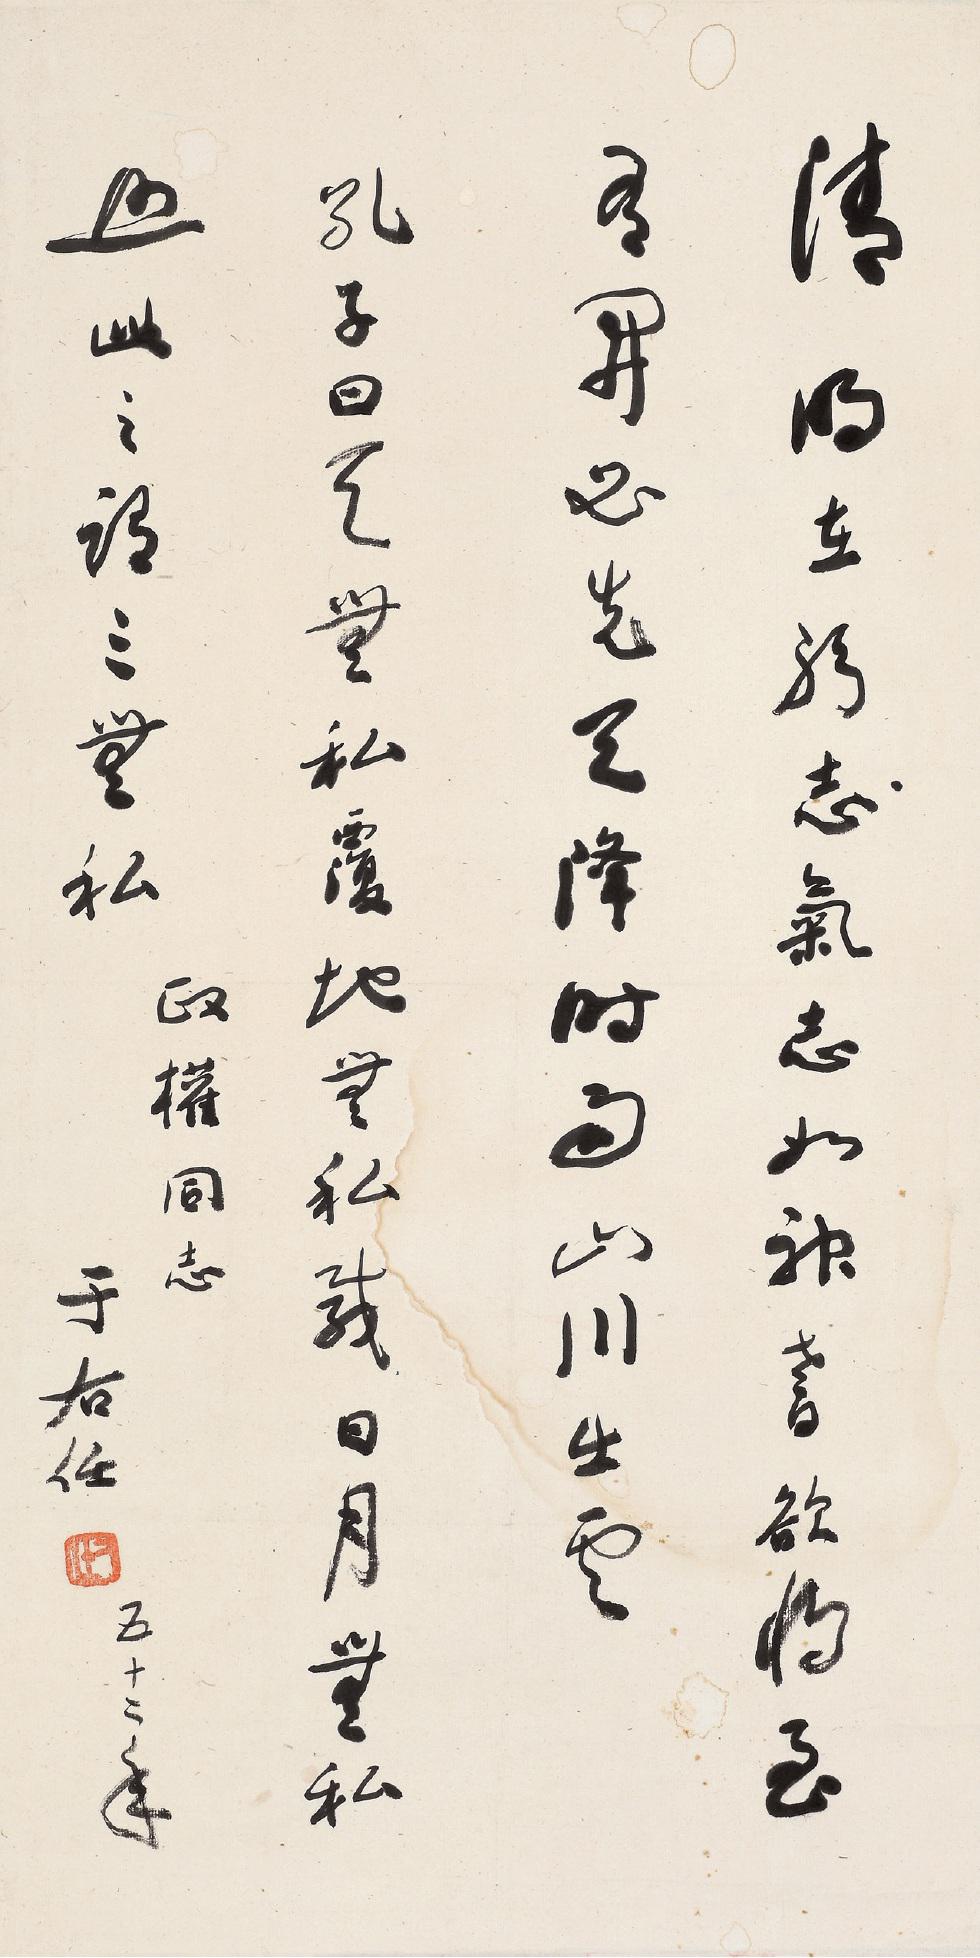 清明在躬志氣志如神耆欲將至
有開必先天降時雨山川出雲
孔子曰天無私覆地無私載日月無私
照此之謂三無私
政權同志
于右任
五十二年